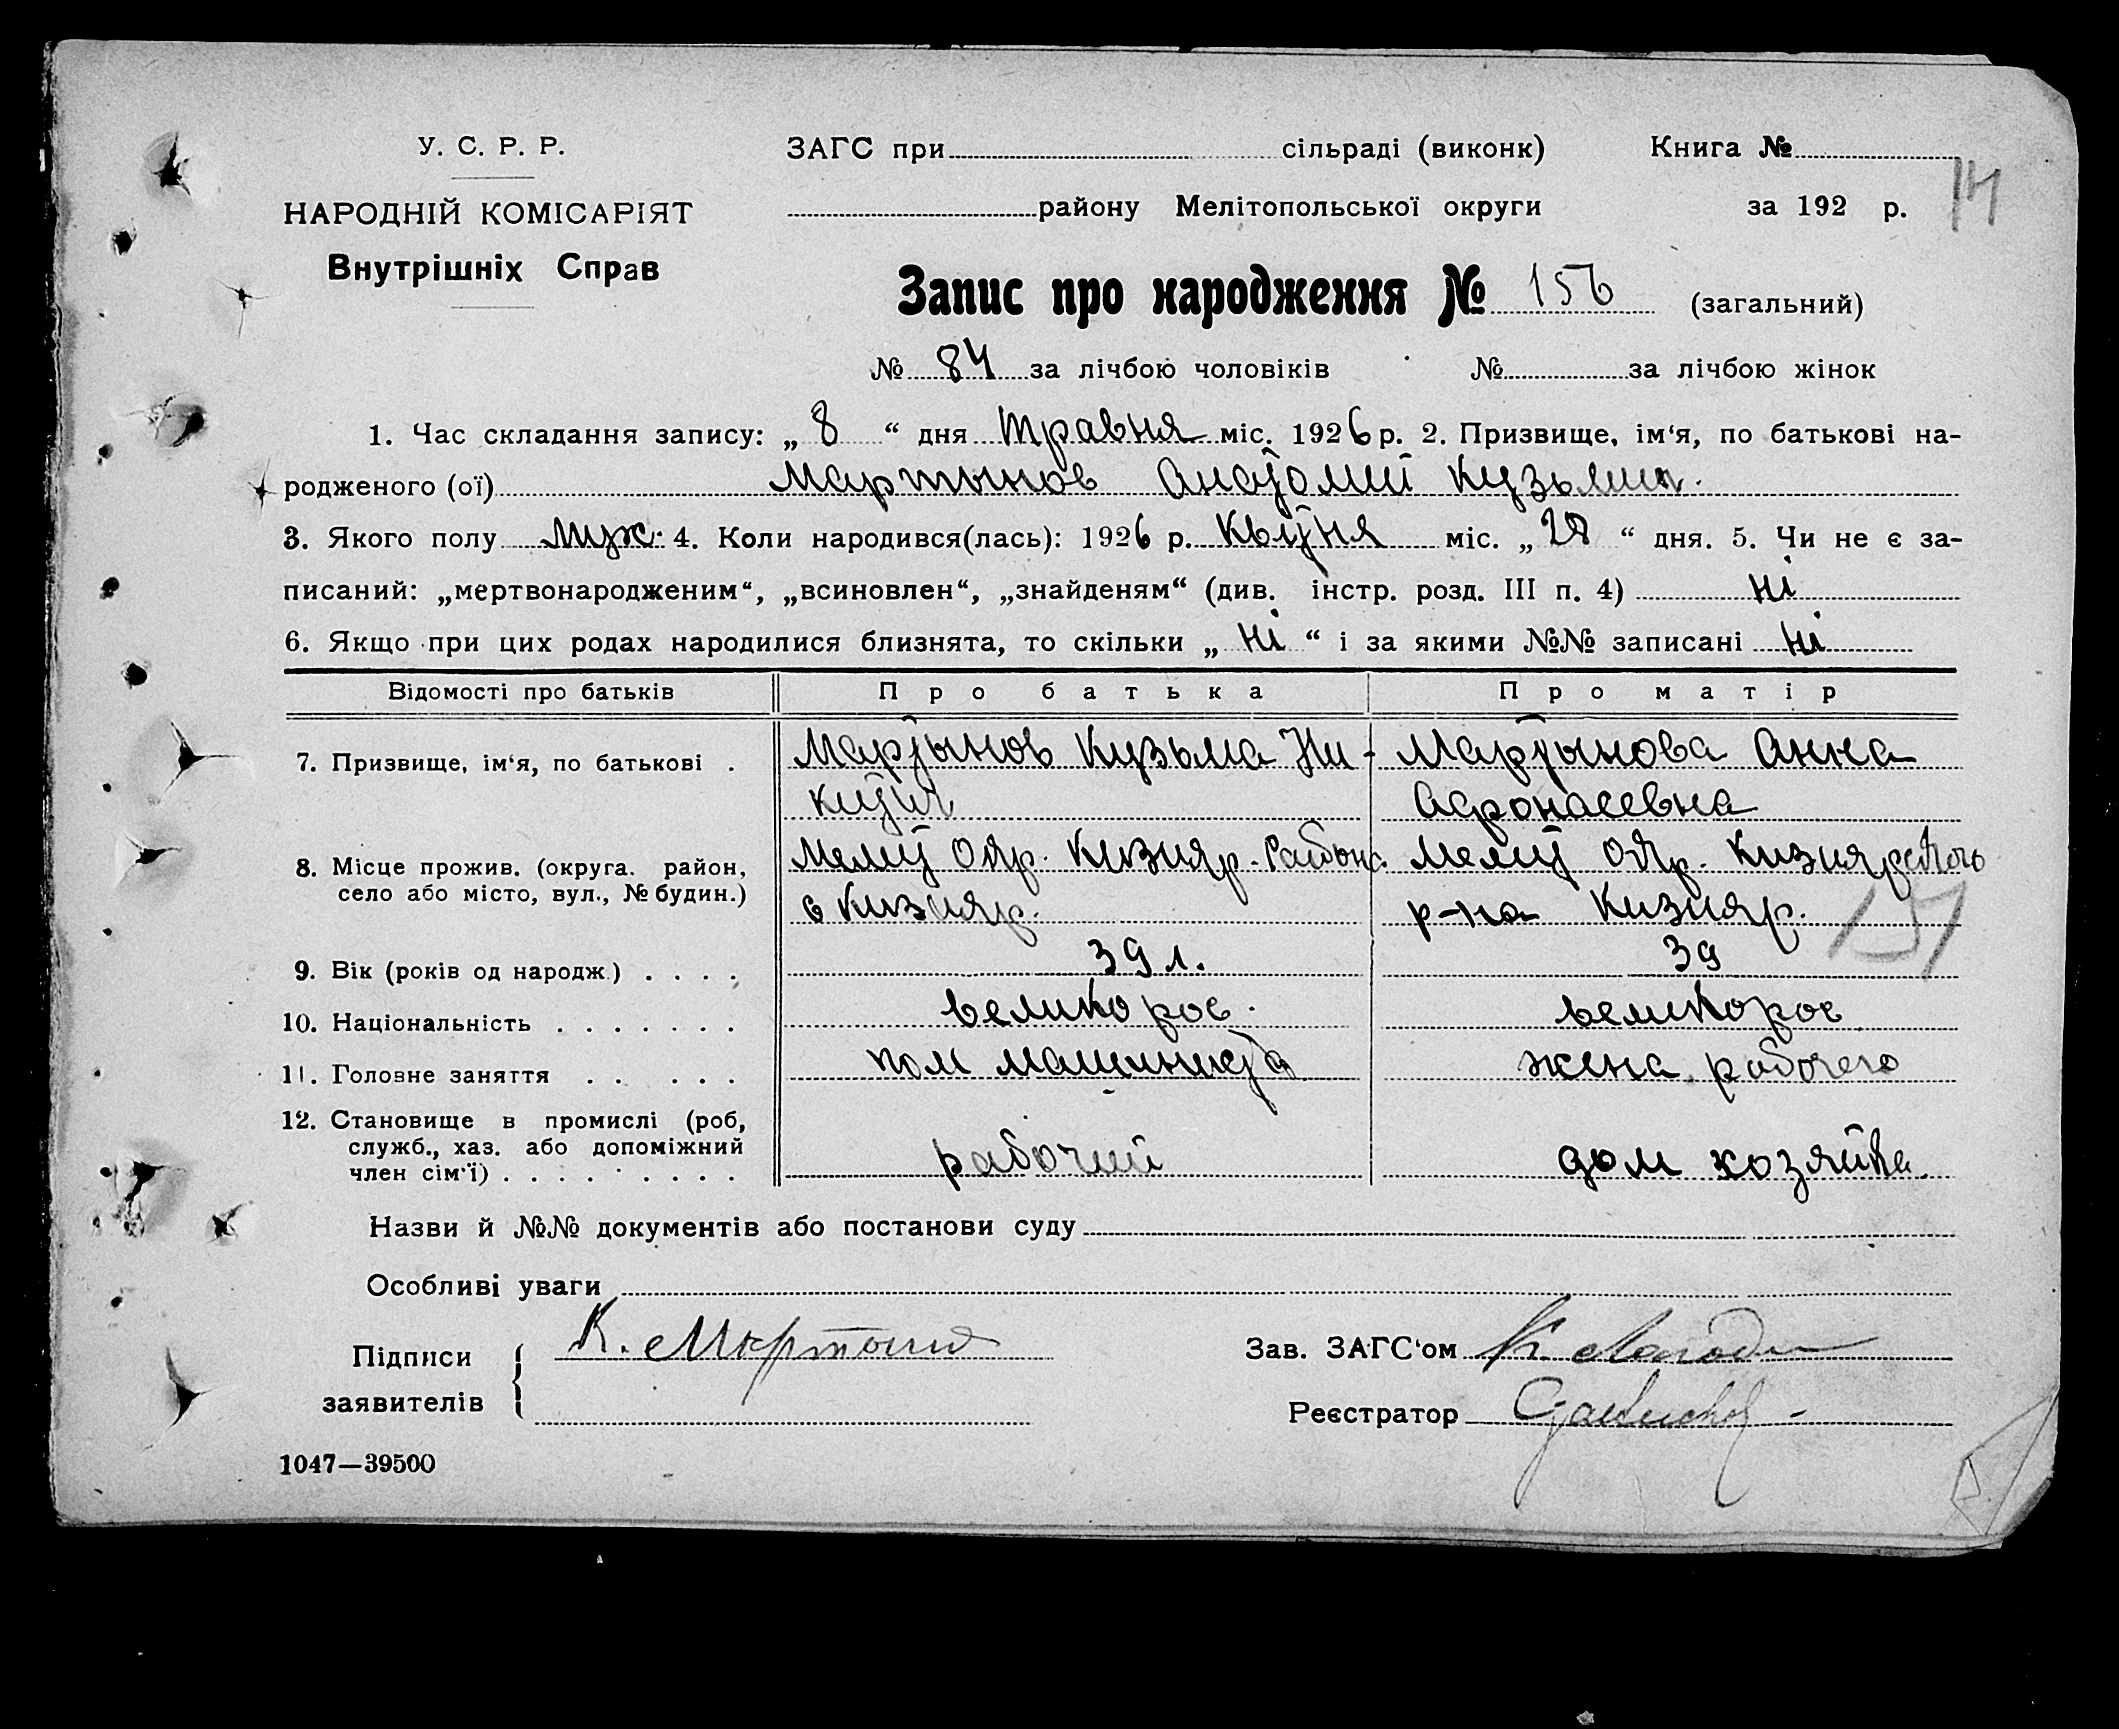 У. С. Р. Р.
НАРОДНІЙ КОМІСАРІЯТ
Внутрішніх Справ
ЗАГС при сільраді (виконк) Книга №
району Мелітопольської округи за 192 р.
Запис про народження № 156 (загальний)
№ 84 за лічбою чоловіків № за лічбою жінок
1. Час складання запису: „ 8 “ дня Травня міс. 1926 р. 2. Призвище, ім‘я, по батькові на-
родженого (ої) Мартынов Анатолий Кузьмич.
3. Якого полу муж. 4. Коли народився(лась): 1926 р. Квітня міс. „ 28 “ дня. 5. Чи не є за-
писаний: „мертвонародженим“, „всиновлен“, „знайденям“ (див. інстр. розд. III п. 4) ні
6. Якщо при цих родах народилися близнята, то скільки „ ні “ і за якими №№ записані ні
Відомості про батьків Про батька Про матір
7. Призвище, ім‘я, по батькові . Мартынов Кузьма Ни- Мартынова Анна
китич Афонасевна
8. Місце прожив. (округа. район, Мелит Окр. Кизияр. Района Мелит Окр. Кизиярского
село або місто, вул., № будин.) с Кизияр. р-на Кизияр.
151
9. Вік (років од народж.) . . . . 39 л. 39
10. Національність . . . . . . . великорос. великорос
11. Головне заняття . . . . . пом машиниста жена рабочего
12. Становище в промислі (роб,
служб., хаз. або допоміжний
член сім‘ї) . . . . . . . . рабочий дом хозяйка.
Назви й №№ документів або постанови суду
Особливі уваги
Підписи К. Мартынов Зав. ЗАГС‘ом
заявителів Реєстратор
1047—39500